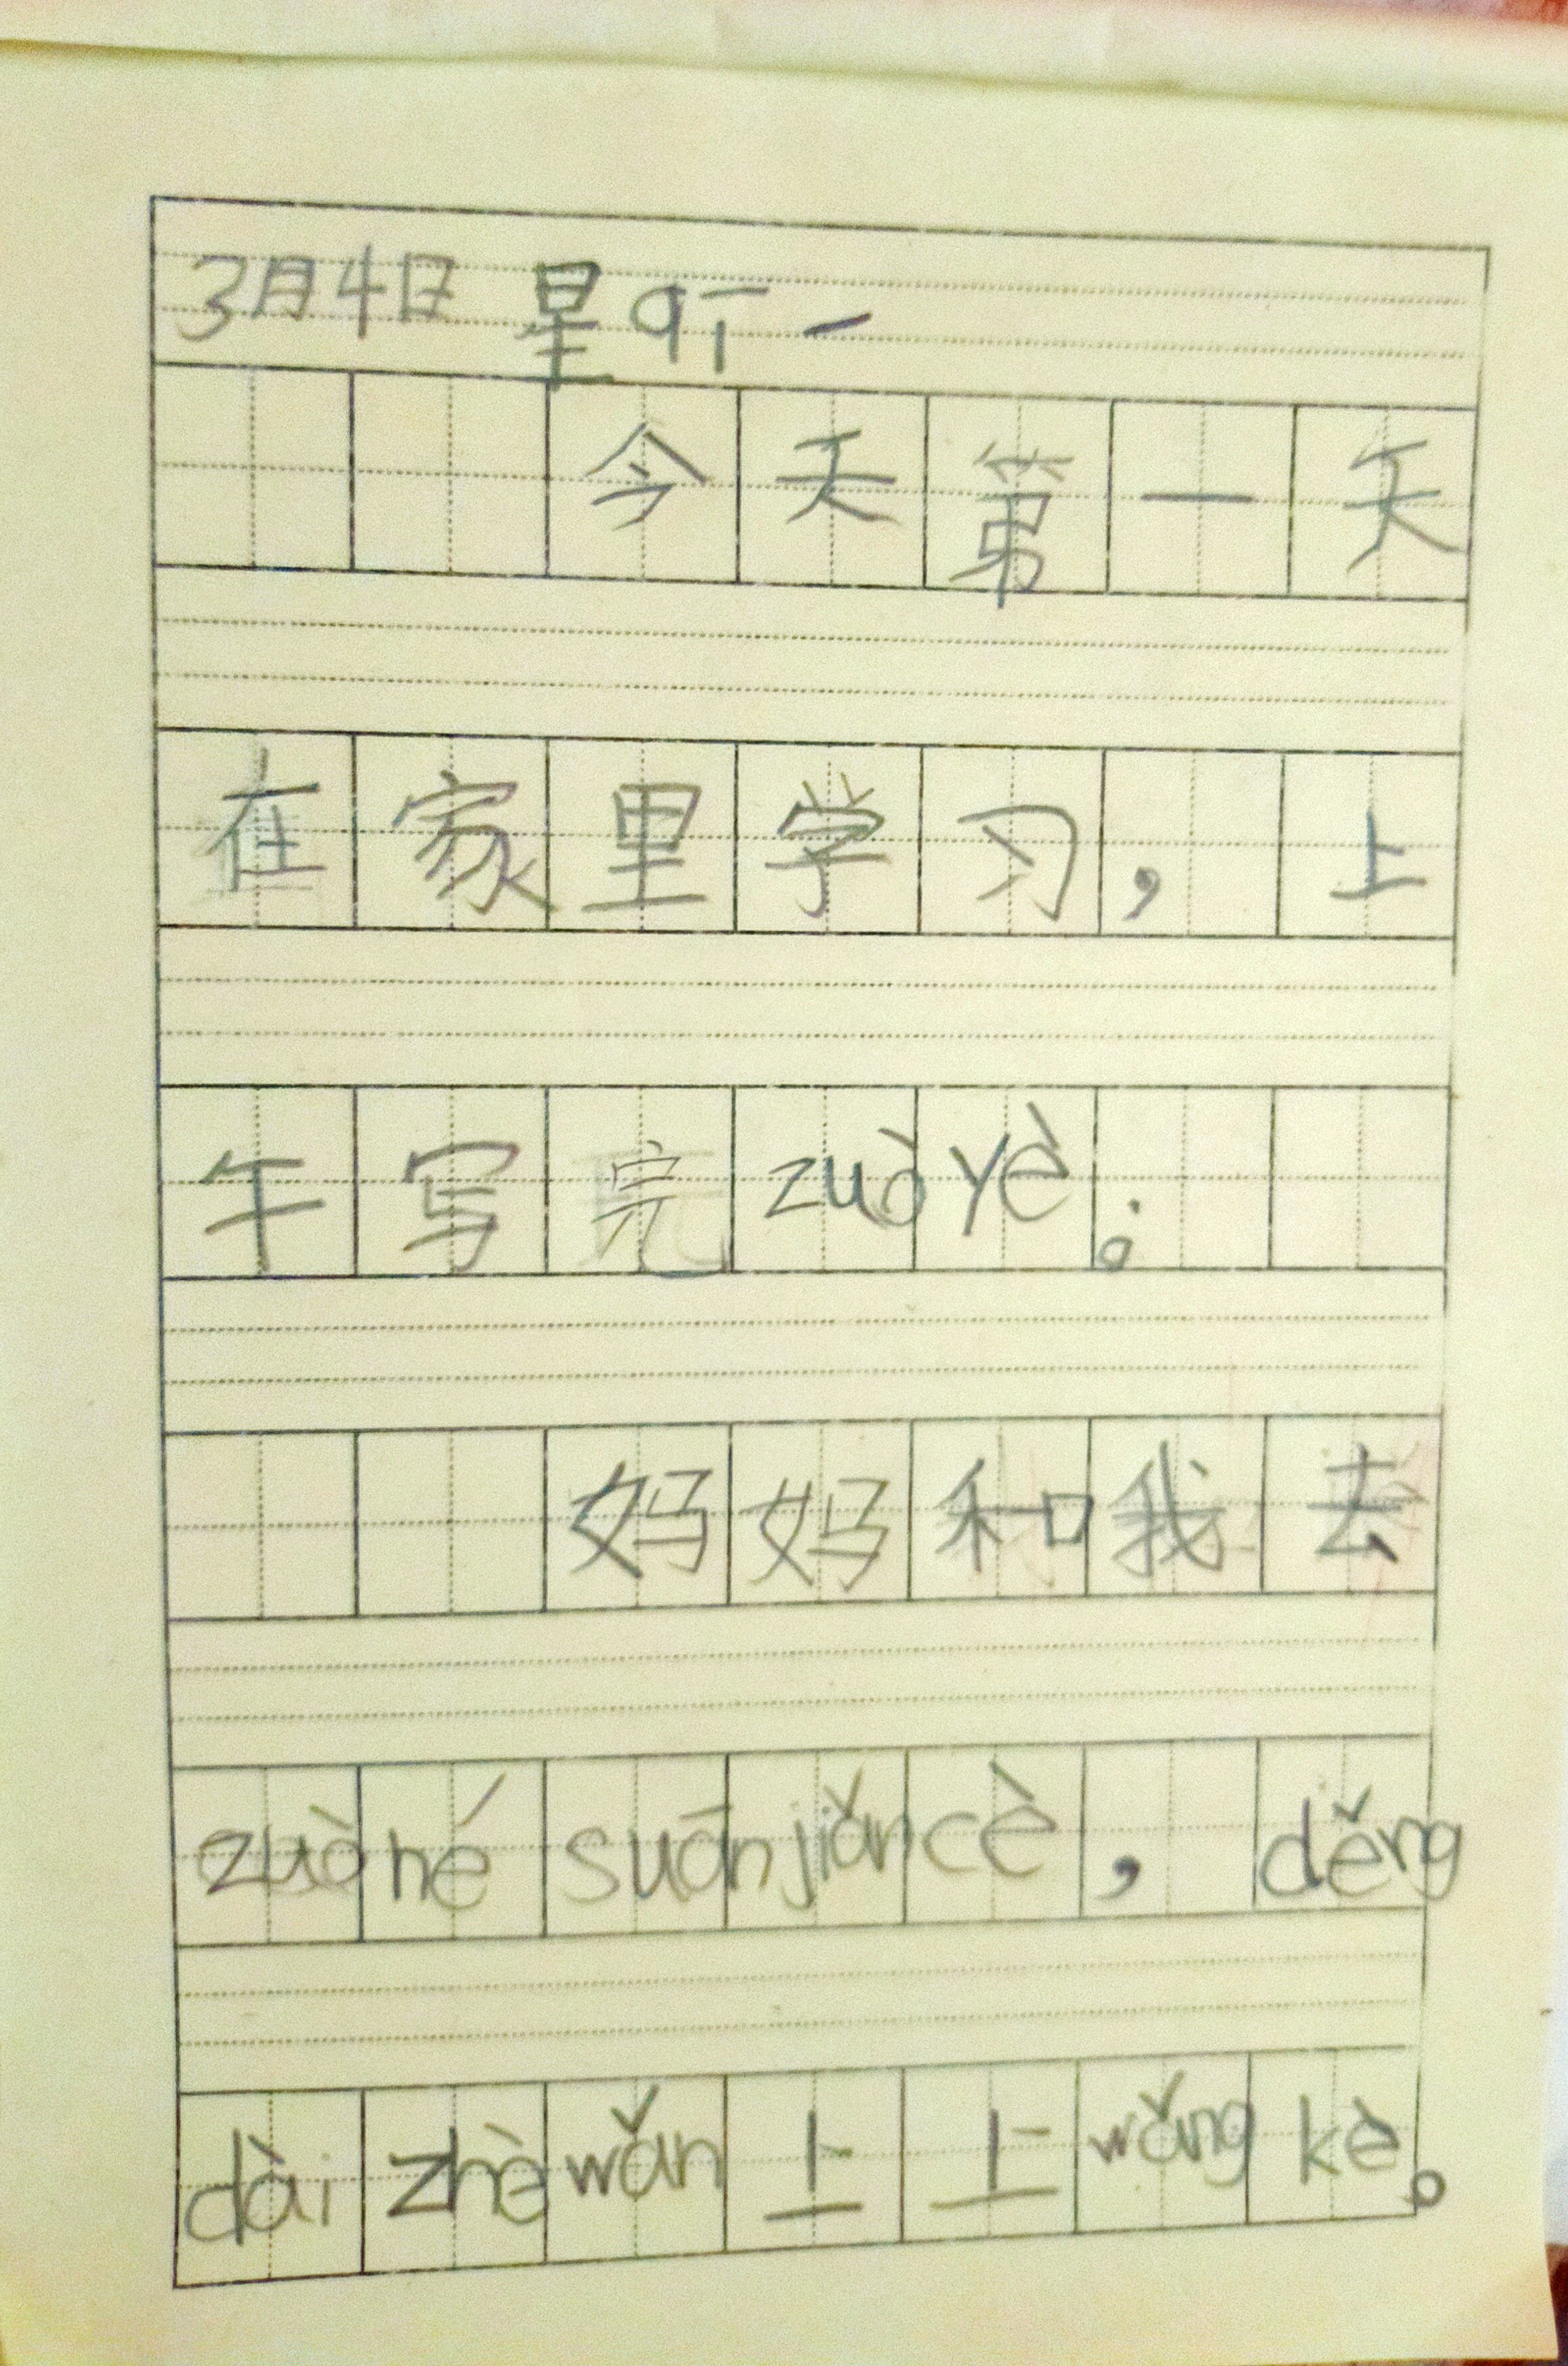 3月4日 星qī一
今天第一天
在家里学习，上
午写完zuòyè。
妈妈和我去
zuòhé suānjiǎncè，děng
dài zhè wǎn上上wǎng kè。